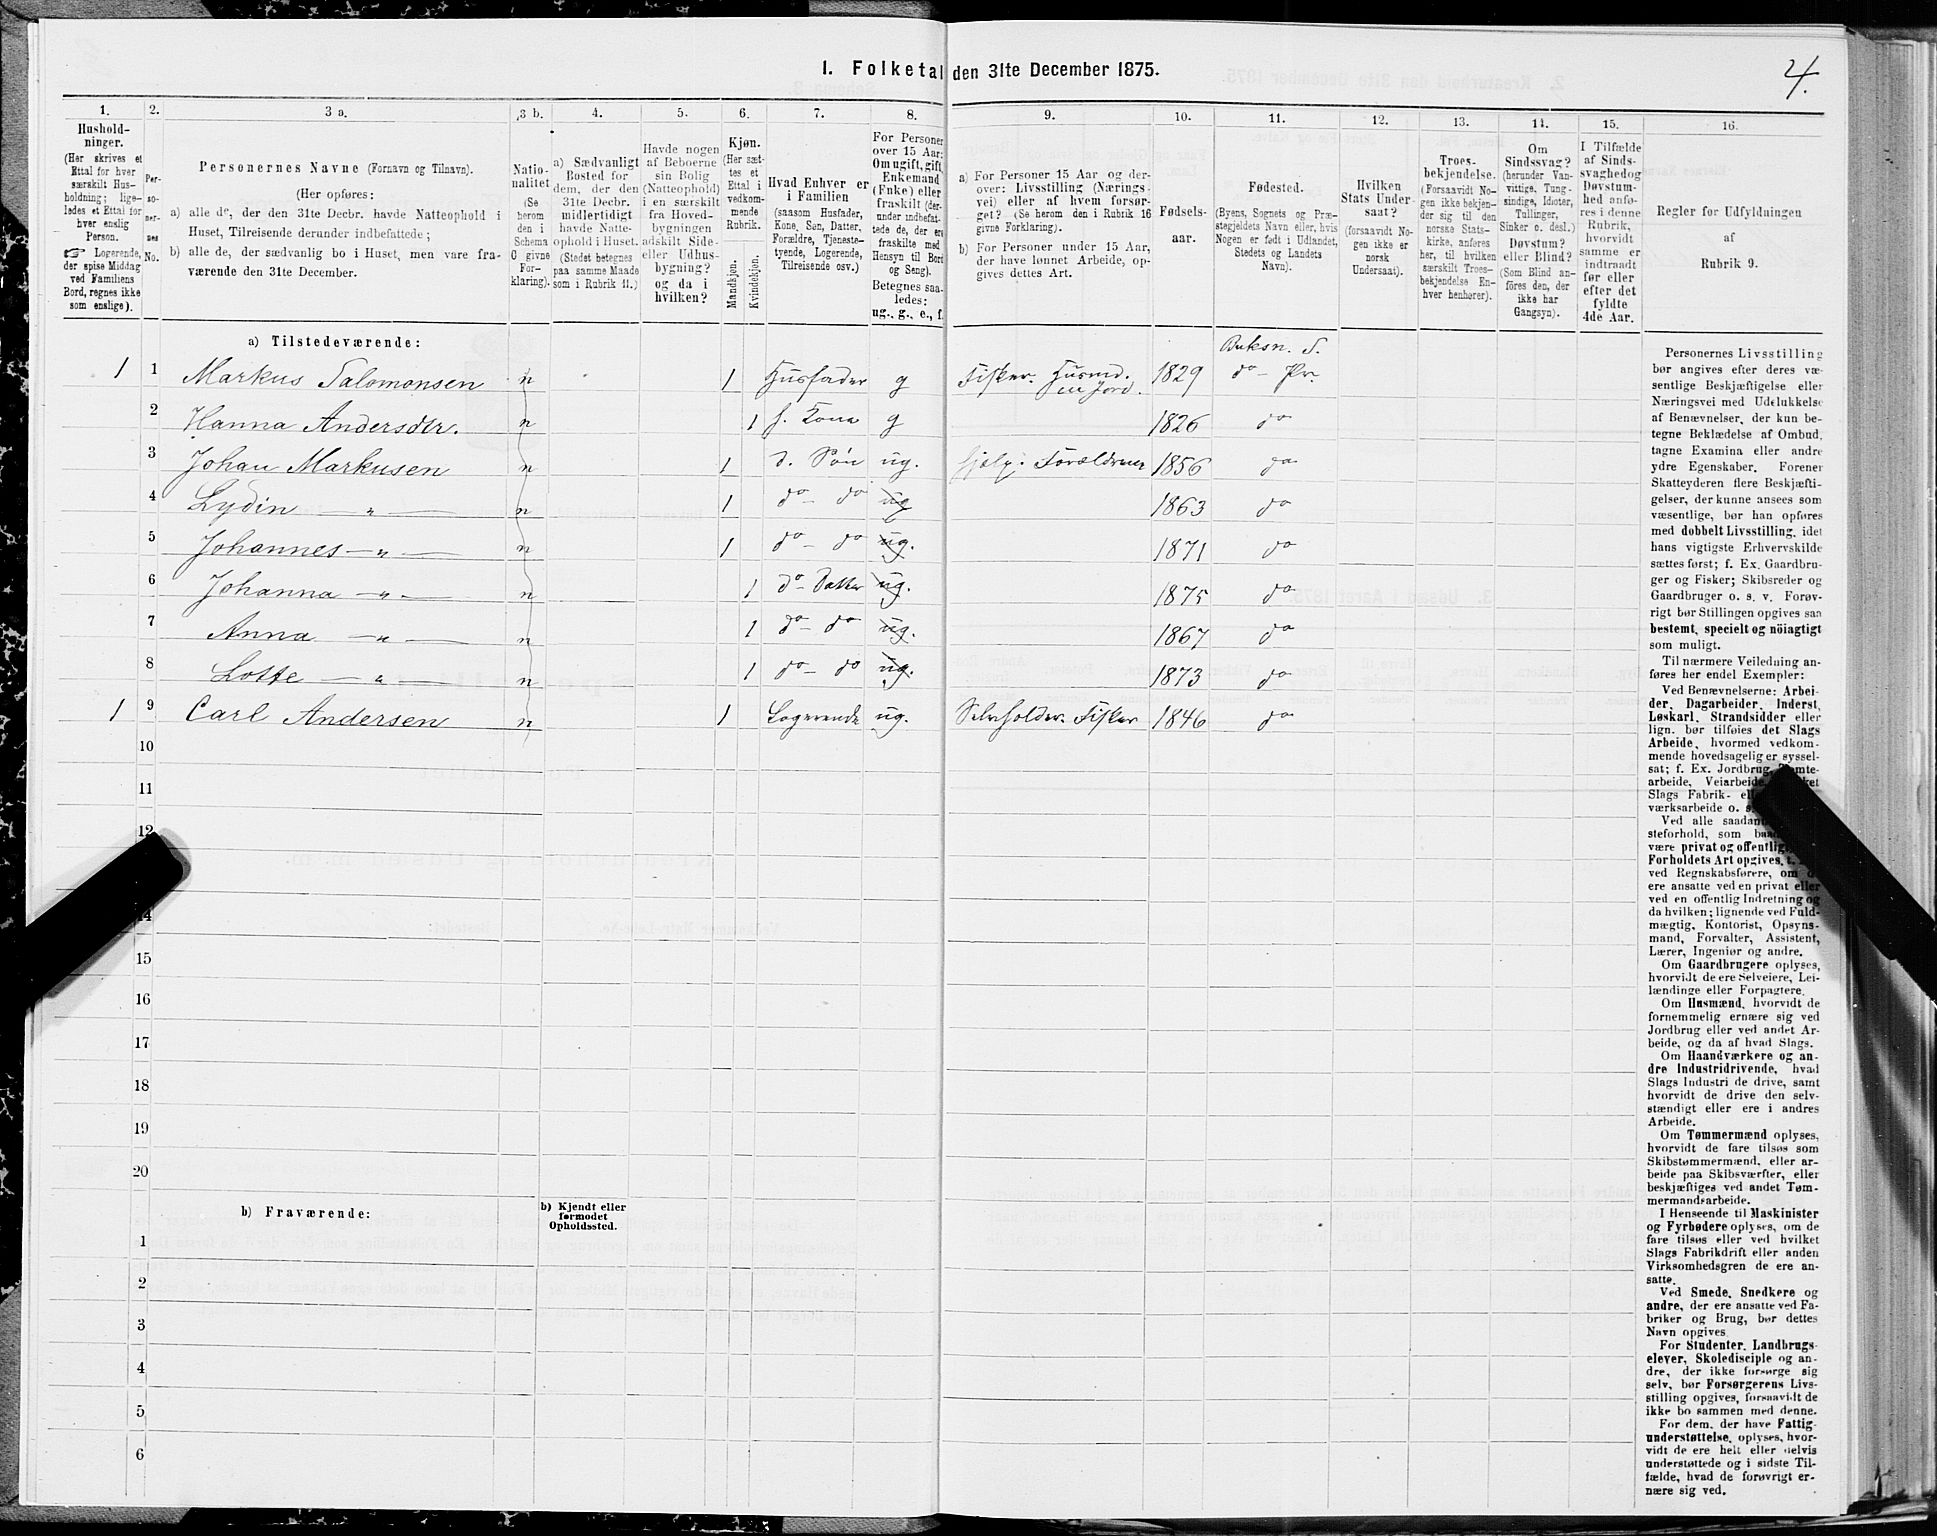 1. Folketal den 31te December 1875.
4.
1.
Hushold-
ninger.
(Her skrives et
Ettal for hver
særskilt Hus-
holdning; lige-
ledes et Ettal for
hver enslig
Person.
☞ Logerende,
der spise Middag
ved Familiens
Bord, regnes ikke
som enslige).
2.
Per-
so-
ner-
nes
No.
3 a.
Personernes Navne (Fornavn og Tilnavn).
(Her opføres:
a) alle de, der den 31te Decbr. havde Natteophold i
Huset, Tilreisende derunder indbefattede;
b) alle de, der sædvanlig bo i Huset, men vare fra-
værende den 31te December.
3 b.
Natio-
nalitet
(Se
herom
den i
Schema
C givne
For-
klaring).
4.
a) Sædvanligt
Bosted for
dem, der den
31te Decbr.
midlertidigt
havde Natte-
ophold i Huset.
(Stedet betegnes
paa samme Maade
som i Rubrik 11.)
5.
Havde nogen
af Beboerne
sin Bolig
(Natteophold)
i en særskilt
fra Hoved-
bygningen
adskilt Side-
eller Udhus-
bygning?
og da i
hvilken?
6.
Kjøn.
(Her sæt-
tes et
Ettal i
vedkom-
mende
Rubrik.
Mandkjøn.
Kvindekjøn.
7.
Hvad Enhver er
i Familien
(saasom Husfader,
Kone, Søn, Datter,
Forældre, Tjeneste-
tyende, Logerende,
Tilreisende osv.)
8.
For Personer
over 15 Aar:
Om ugift, gift,
Enkemand
(Enke) eller
fraskilt (der-
under indbefat-
tede de, der ere
fraskilte med
Hensyn til Bord
og Seng).
Betegnes saa-
ledes:
ug., g., e., f.
9.
a) For Personer 15 Aar og der-
over: Livsstilling (Nærings-
vei) eller af hvem forsør-
get? (Se herom den i Rubrik 16
givne Forklaring).
b) For Personer under 15 Aar,
der have lønnet Arbeide, op-
gives dettes Art.
10.
Fødsels-
aar.
11.
Fødested.
(Byens, Sognets og Præ-
stegjeldets Navn eller, hvis
Nogen er født i Udlandet,
Stedets og Landets
Navn).
12.
Hvilken
Stats Under-
saat?
(forsaavidt No-
gen ikke er
norsk
Undersaat).
13.
Troes-
bekjendelse.
(Forsaavidt No-
gen ikke bekjen-
der sig til den
norske Stats-
kirke, anføres
her, til hvilken
særskilt Troes-
bekjendelse En-
hver henhører).
14.
Om
Sindssvag?
(herunder Van-
vittige, Tung-
sindige, Idioter,
Tullinger,
Sinker o. desl.)
Døvstum?
eller Blind?
(Som Blind an-
føres den, der
ikke har
Gangsyn).
15.
I Tilfælde
af Sinds-
svaghed og
Døvstum-
hed anfø-
res i denne
Rubrik,
hvorvidt
samme er
indtraadt
før eller
efter det
fyldte
4de Aar.
16.
Regler for Udfyldningen
af
Rubrik 9.
a) Tilstedeværende:
Buksn. S.
1 1 Markus Salomonsen n 1 Husfader g Fisker. Husmd. m Jord. 1829 do Pr.
2 Hanna Andersdtr. n 1 h. Kone g 1826 do
3 Johan Markusen n 1 d. Søn ug. hjelp. Forældrene 1856 do
4 Lydin — „ — n 1 do do ug 1863 do
5 Johannes — „ — n 1 do do ug. 1871 do
6 Johanna — „ — n 1 do Datter ug. 1875 do
7 Anna — „ — n 1 do do ug. 1867 do
8 Lotte — „ — n 1 do do ug. 1873 do
1 9 Carl Andersen n 1 Logerende ug. Selvholden Fisker 1846 do
10
11
12
14
15
16
17
18
19
20
b) Fraværende:
b) Kjendt eller
formodet
Opholdssted.
1
2
3
4
5
6
Personernes Livsstilling
bør angives efter deres væ-
sentlige Beskjæftigelse eller
Næringsvei med Udelukkelse
af Benævnelser, der kun be-
tegne Beklædelse af Ombud,
tagne Examina eller andre
ydre Egenskaber. Forener
Skatteyderen flere Beskjæfti-
gelser, der kunne ansees som
væsentlige, bør han opføres
med dobbelt Livsstilling, idet
hans vigtigste Erhvervskilde
sættes først; f. Ex. Gaardbru-
ger og Fisker; Skibsreder og
Gaardbruger o. s. v. Forøv-
rigt bør Stillingen opgives saa
bestemt, specielt og nöiagtigt
som muligt.
Til nærmere Veiledning an-
føres her endel Exempler:
Ved Benævnelserne: Arbei-
der, Dagarbeider, Inderst,
Løskarl, Strandsidder eller
lign. bør tilføies det Slags
Arbeide, hvormed vedkom-
mende hovedsagelig er syssel-
sat; f. Ex. Jordbrug,
arbeide, Veiarbeide,
Slags Fabrik-
værksarbeide o. s.
Ved alle
steforhold, som
være privat og offentlig,
Forholdets Art opgives,
ved Regnskabsførere, om
ere ansatte ved en privat eller
ved en offentlig Indretning og
da hvilken; lignende ved Fuld-
mægtig, Kontorist, Opsyns-
mand, Forvalter, Assistent,
Lærer, Ingeniør og andre.
Om Gaardbrugere oplyses,
hvorvidt de ere Selveiere, Lei-
lændinge eller Forpagtere.
Om Husmænd, hvorvidt de
fornemmelig ernære sig ved
Jordbrug eller ved andet Ar-
beide, og da af hvad Slags.
Om Haandværkere og an-
dre Industridrivende, hvad
Slags Industri de drive, samt
hvorvidt de drive den selv-
stændigt eller ere i andres
Arbeide.
Om Tømmermænd oplyses,
hvorvidt de fare tilsøs som
Skibstømmermænd, eller ar-
beide paa Skibsværfter, eller
beskjæftiges ved andet Tøm-
mermandsarbeide.
I Henseende til Maskinister
og Fyrbødere oplyses, om de
fare tilsøs eller ved hvilket
Slags Fabrikdrift eller anden
Virksomhedsgren de ere an-
satte.
Ved Smede, Snedkere og
andre, der ere ansatte ved Fa-
briker og Brug, bør dettes
Navn opgives.
For Studenter, Landbrugs-
elever, Skoledisciple og an-
dre, der ikke forsørge sig
selv, bør Forsørgerens Livs-
stilling opgives, forsaavidt de
ikke bo sammen med denne.
For dem, der have Fattig-
understøttelse, oplyses, hvor-
vidt de ere helt eller delvis
understøttede og i sidste Til-
fælde, hvad de forøvrigt er-
nære sig ved.